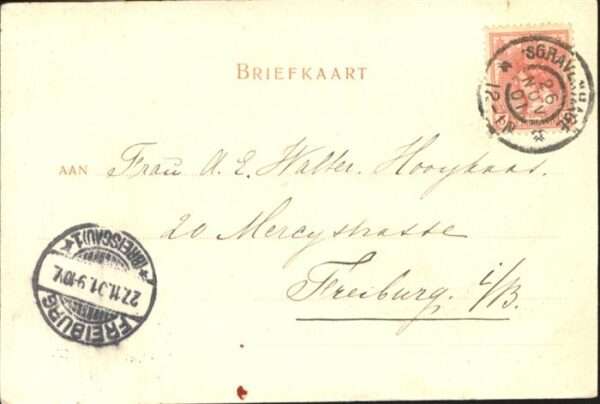 BRIEFKAART
'SGRAVENHAGE
26
NOV
01
12-1N
AAN Frau A. E. Walter. Hooykaas.
20 Mercystrasse
Freiburg. i/B.
*(BREISGAU)1*
27.11.01.9-10V.
FREIBURG